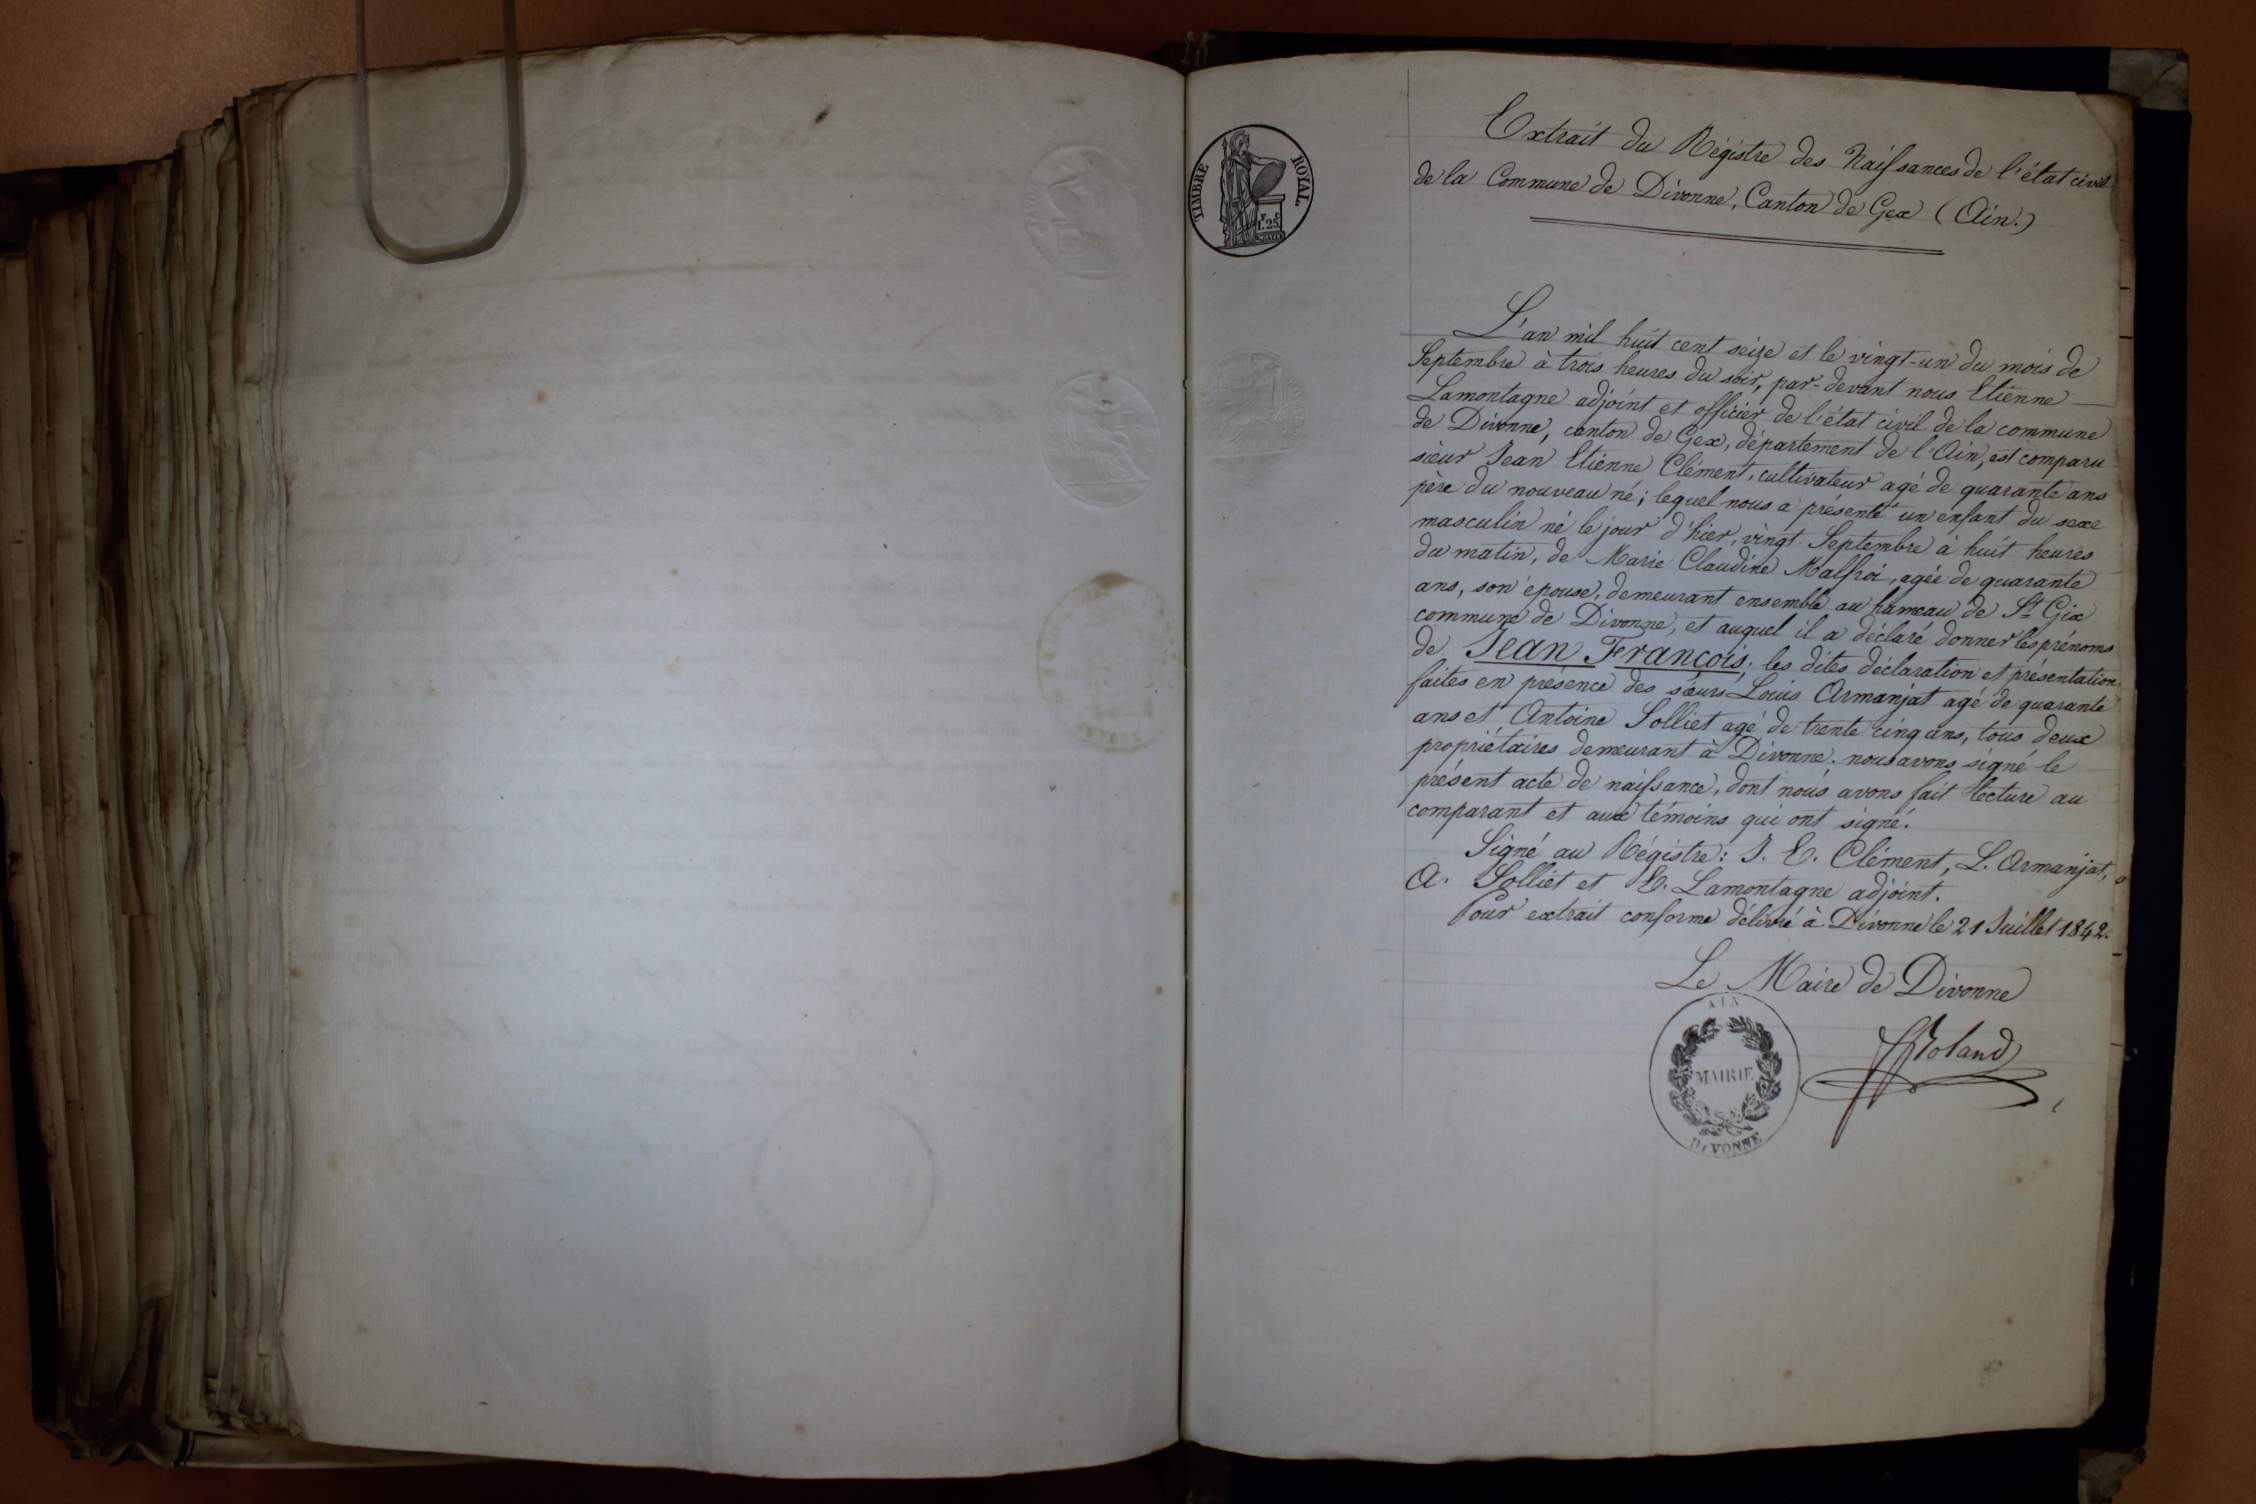 TIMBRE ROYAL
1.25
Extrait du Régistre des Naissances de l'état civil
de la Commune de Divonne, Canton de Gex (Ain.)
L'an mil huit cent seize et le vingt-un du mois de
Septembre à trois heures du soir, par-devant nous Etienne
Lamontagne adjoint et officier de l'état civil de la commune
de Divonne, canton de Gex, département de l'Ain, est comparu
sieur Jean Etienne Clément, cultivateur agé de quarante ans
père du nouveau né; lequel nous a présenté un enfant du sexe
masculin né le jour d'hier, vingt Septembre à huit heures
du matin, de Marie Claudine Malfroi, agée de quarante
ans, son épouse, demeurant ensemble au hameau de St Gix
commune de Divonne, et auquel il a déclaré donner les prénoms
de Jean François; les dites déclaration et présentation
faites en présence des sieurs Louis Armanjat agé de quarante
ans et Antoine Solliet agé de trente cinq ans, tous deux
propriétaires demeurant à Divonne. nous avons signé le
présent acte de naissance, dont nous avons fait lecture au
comparant et aux témoins qui ont signé.
Signé au Régistre: J. E. Clément, L. Armanjat,
A. Solliet et E. Lamontagne adjoint.
Pour extrait conforme délivré à Divonne le 21 Juillet 1842.
Le Maire de Divonne
Roland
AIN
MAIRIE
DIVONNE